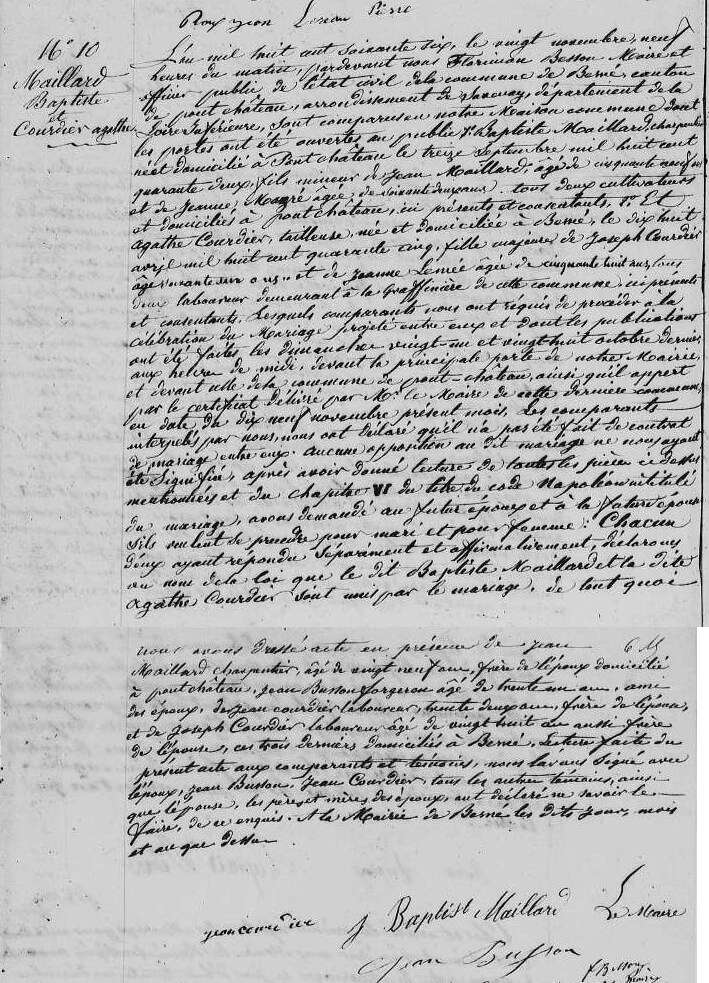 Roux jean Leneau Pierre
N° 10
Maillard
Baptiste
et
Courdier agathe
L'an mil huit cent soixante six, le vingt novembre, neuf
heures du matin, pardevant nous Florimon Besson Maire et
officier public de l'état civil de la commune de Berné, canton
de pont château, arrondissement de Savenay, département de la
Loire Inférieure, sont comparus en notre Maison commune dont
les portes ont été ouvertes au public 1° Baptiste Maillard, charpentier
né et domicilié à Pontchâteau le treize Septembre mil huit cent
quarante deux, fils mineur de Jean Maillard, âgé de cinquante neuf ans
et de Jeanne, âgée, de soixant deux ans. tous deux cultivateurs
et domiciliés à pontchâteau, ici présents et consentants, 2° Et
agathe Courdier, tailleuse, née et domiciliée à Berné, le dix huit
avril mil huit cent quarante cinq, fille majeure de Joseph Courdier
âgé soixante ans, et de Jeanne Lemée âgée de cinquante huit ans, tous
deux laboureur demeurant à la Graffinière de cette commune ici présents
et consentants. Lesquels comparants nous ont requis de procéder à la
célébration du Mariage projeté entre eux et dont les publications
ont été faites les dimanches vingt-un et vingt huit octobre dernier
aux heures de midi, devant la principale porte de notre Mairie,
et devant celle de la commune de pont-château, ainsi qu'il appert
par le certificat délivré par Mr le Maire de cette dernière commune,
en date du dix neuf novembre présent mois. Les comparants
interpelés par nous, nous ont déclaré qu'il n'a pas été fait de contrat
de mariage entre eux. aucune opposition au dit mariage ne nous ayant
été signifiée, après avoir donné lecture de toutes les pièces ci dessus
mentionnées et du chapitre VI du titre du code Napoléon intitulé
du mariage, avons demandé au futur époux et à la future épouse
s'ils veulent se prendre pour mari et pour femme : Chacun
d'eux ayant répondu séparément et affirmativement, déclarons
au nom de la loi que le dit Baptiste Maillard et la dite
agathe Courdier sont unis par le mariage. de tout quoi
nous avons dressé acte en présence de jean
Maillard charpentier, âgé de vingt neuf ans, frère de l'époux domicilié
à pontchâteau, jean Busson forgeron âgé de trente un ans, ami
des époux, de jean courdier laboureur, trente deux ans, frère de l'épouse,
et de Joseph Courdier laboureur âgé de vingt huit ans aussi frère
de l'épouse, ces trois derniers domiciliés à Berné, Lecture faite du
présent acte aux comparants et témoins, nous l'avons signé avec
l'époux, jean Busson, jean Courdier, tous les autres témoins, ainsi
que l'épouse, les pères et mères des époux, ont déclaré ne savoir le
faire, de ce enquis. A la Mairie de Berné les dits jour, mois
et an que dessus
jean courdier J Baptist Maillard Le Maire
Jean Busson
F Besson